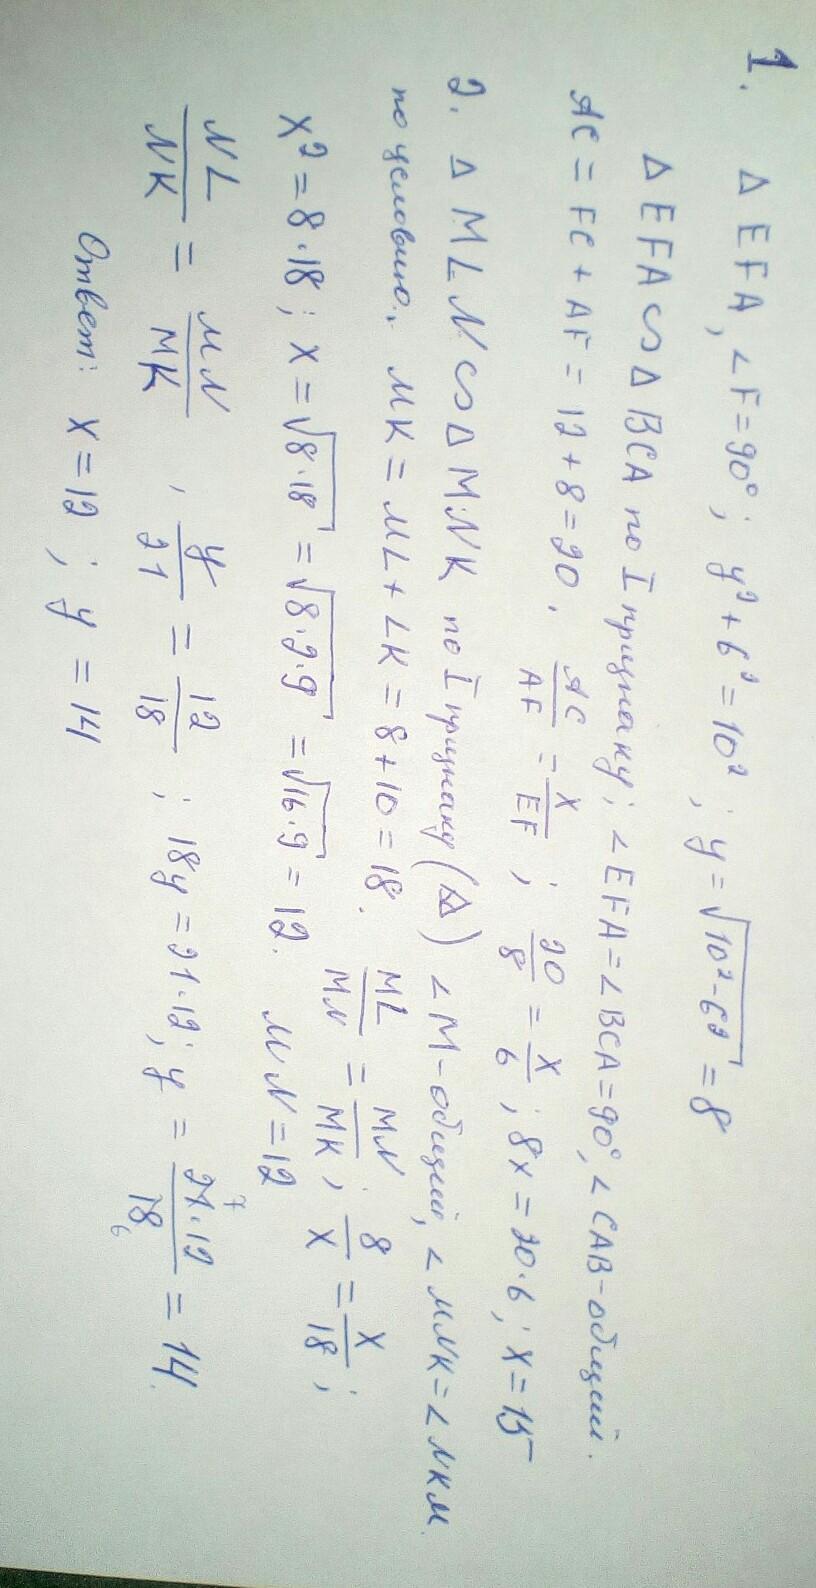 1. Δ EFA, ∠F=90°; y²+6²=10²; y=√10²-6² = 8
Δ EFA ∽ Δ BCA по I признаку; ∠EFA=∠BCA=90°, ∠CAB-общий.
AC = FC + AF = 12+8=20. AC/AF = x/EF; 20/8 = x/6; 8x=20·6; x=15
2. Δ MLN ∽ Δ MNK по I признаку (Δ) ∠M-общий, ∠MNK=∠NKM.
по условию., MK=ML+LK=8+10=18. ML/MN = MN/MK; 8/x = x/18;
x²=8·18; x=√8·18 = √8·2·9 = √16·9 = 12. MN=12
NL/NK = MN/MK, y/21 = 12/18; 18y=21·12; y = 21·12/18 = 14.
7
6
Ответ: x=12; y=14